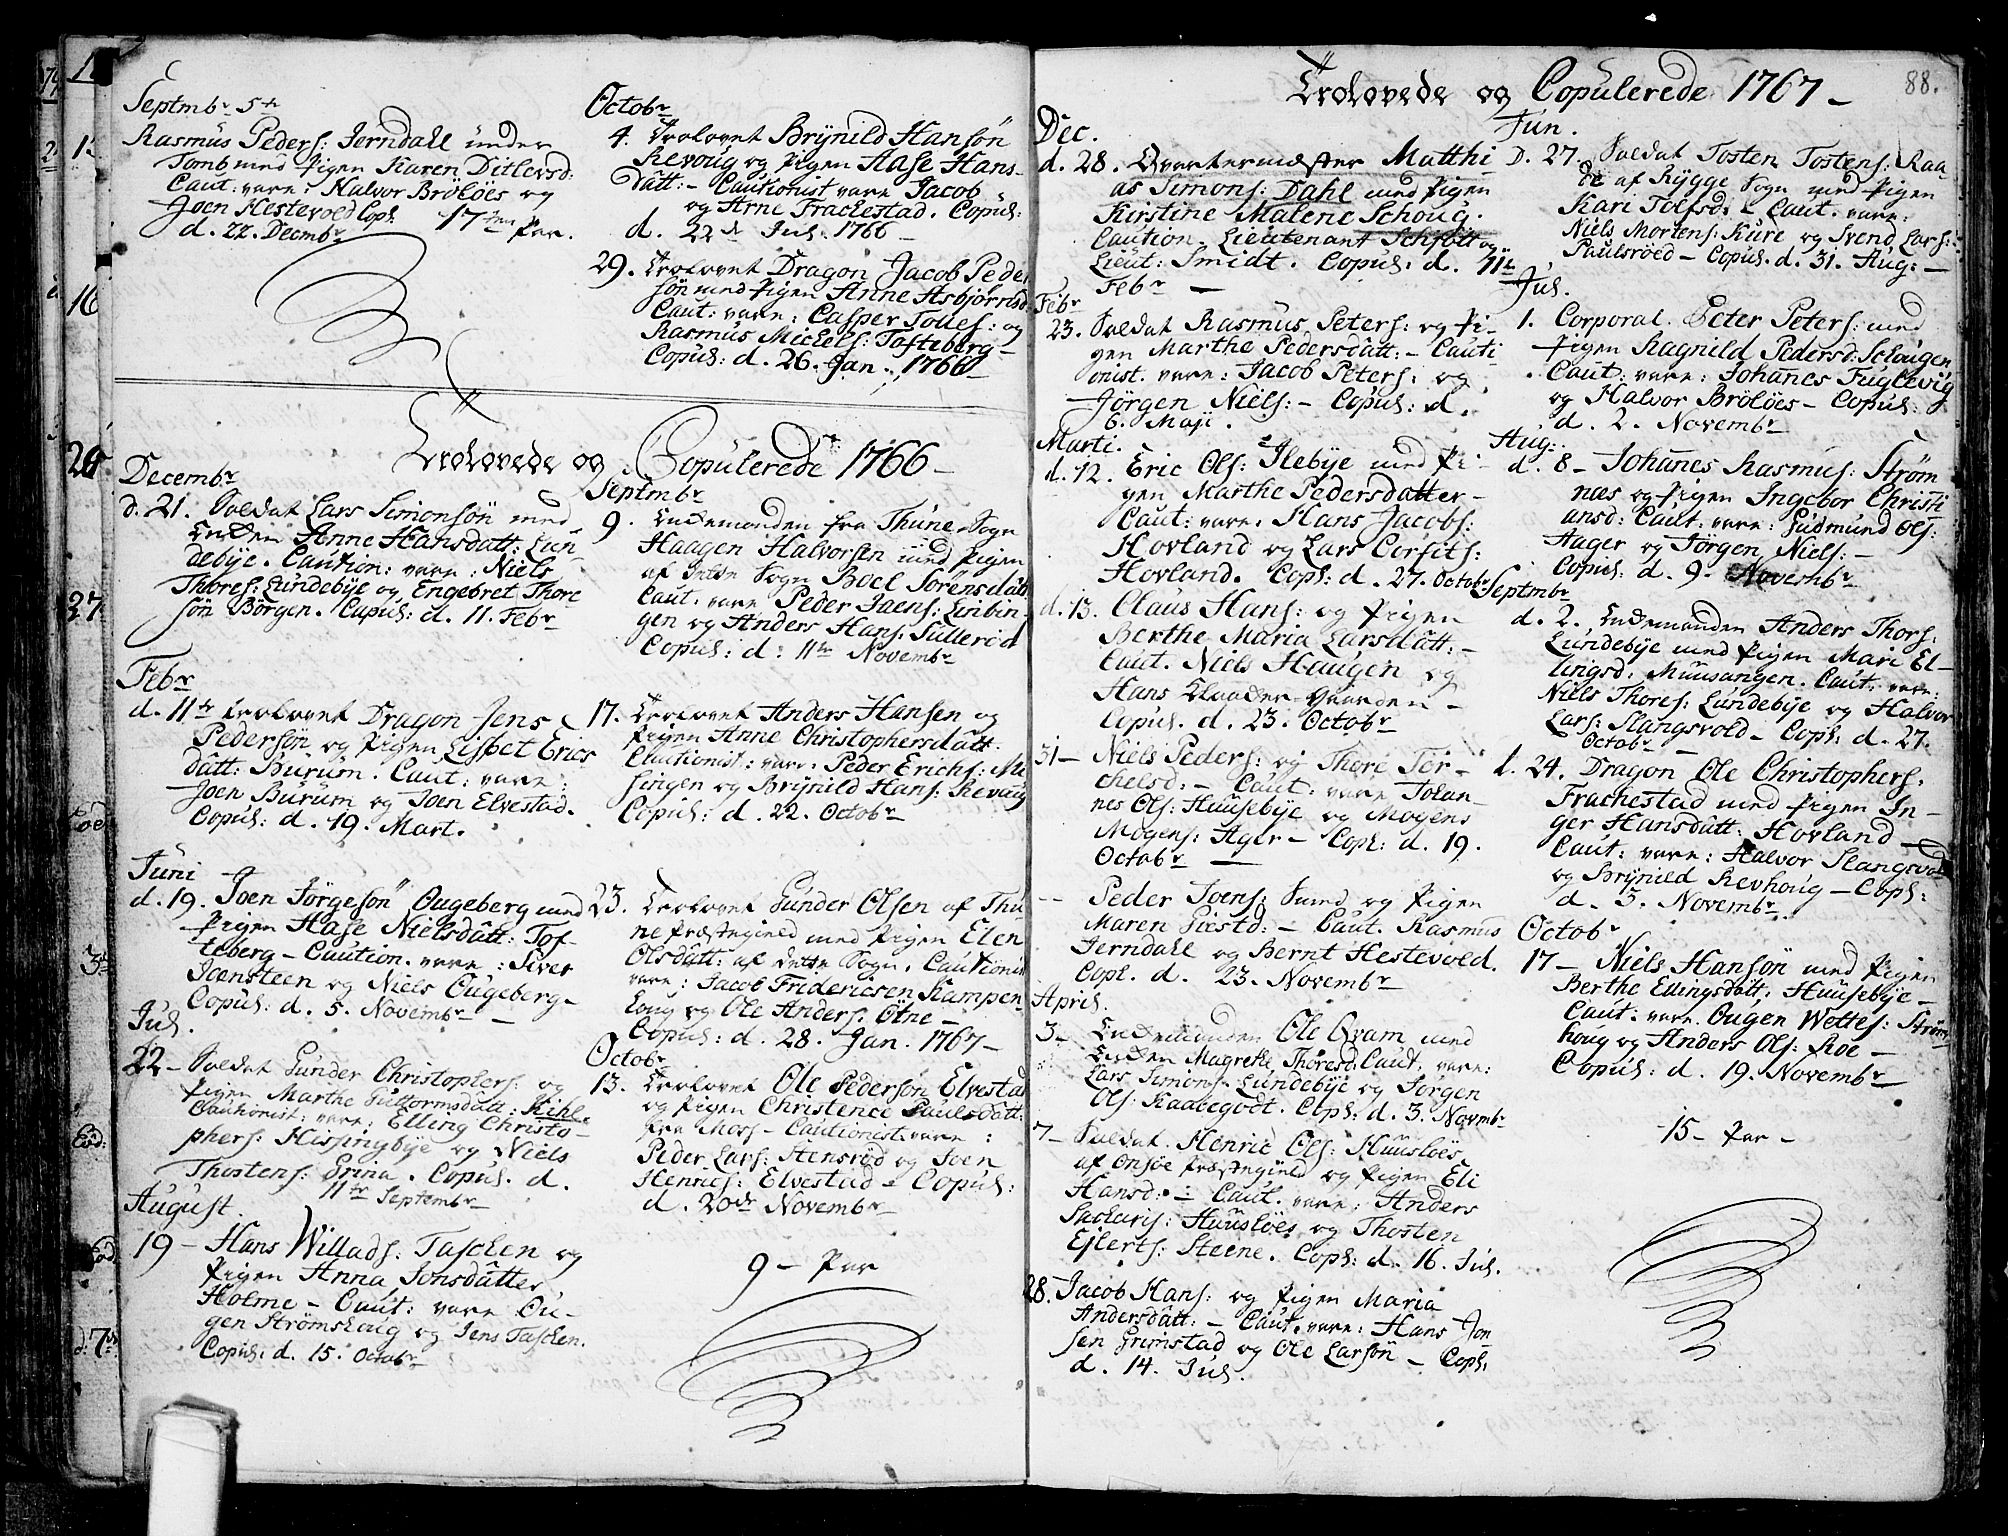 Septmbr 5te
Rasmus Peders: Jerndahl under
Tomb med Pigen Karen Ditlevsd:
Caut: vare: Halvor Brölöes og
Joen Hestevold Coph
d. 22. Decmbr 17ten Par.
Octobr
4. Trolovet Brÿnild Hansön
Revoug og Pigen Hase Hans-
datt: - Cautionist vare Jacob
og Arne Frackestad. Copul:
d. 22de Jul. 1766 -
29. Trolovet Dragon Jacob Peder
sön med Pigen Anne Asbjørnsd:
Caut: vare: Casper Tollefs: og
Rasmus Michels: Tofteberg -
Copul: d. 26. Jan. 1766
Trolovede og Copulerede 1766 -
Decembr
d. 21. Soldat Lars Simonsön med
Enken Anne Hansdatt: Lun-
debÿe. Caution: vare: Niels
Thores: Lundebÿe og Engebret Thore
sön Borgen. Copul: d. 11. Febr
Febr
d. 11te trolovet Dragon Jens
Pedersön og Pigen Lisbet Erics
datt: Burum. Caut: vare:
Joen Burum og Joen Elvestad.
Copul: d. 19. Mart.
Juni
d. 19. Joen Jörgesön Ougeberg med
Pigen Hase Nielsdatt: Tof-
teberg - Caution. vare: Siver
Joensteen og Niels Ougeberg -
Copul: d. 5. Novembr -
Jul.
22 - Soldat Gunder Christophers: og
Pigen Marthe Guttormsdatt: Kihle
Cautionist: vare: Elling Christo-
phers: Hissingbÿe og Niels
Thostens: Grina. Copul. d.
11te Septembr
August.
19 - Hans Willads: Taschen og
Pigen Anna Jonsdatter
Holme - Caut: vare Ou-
gen Strömshoug og Jens Taschen.
Copul: d. 15. Octobr
Septmbr
9. Enkemanden fra Thune Sogn
Haagen Halvorsen med Pigen
af dette Sogn Boel Sörensdatt:
Caut. vare Peder Jaens: Linbin-
gen og Anders Hans: Sülleröd
Copul: d: 11te Novembr
17. Trolovet Anders Hansen og
Pigen Anne Christophersdatt:
Cautionist: vare: Peder Erichs: Mÿ
singen og Brÿnild Hans: Revoug
Copul: d. 22. Octobr
23. Trolovet Gunder Olsen af Thu
ne Præstegield med Pigen Elen
Olsdatt: af dette Sogn. Cautionist
vare: Jacob Fridericsen Kampen
houg og Ole Anders: Ötne -
Copul: d. 28. Jan. 1767 -
Octobr
13. Trolovet Ole Pedersön Elvestad
og Pigen Christence Paulsdatt:
fra Moss - Cautionist: vare:
Peder Lars: Stensröd og Joen
Henrics: Elvestad - Copul:
d. 20de Novembr
9 - Par
Trolovede og Copulerede 1767 -
88.
Dec.
d. 28. Qvartermester Matthi
as Simons: Dahl med Pigen
Kirstine Malene Schoug.
Caution. Lieutenant Schiölt og
Lieut: Smidt. Copul: d. 11te
Febr -
Febr
23. Soldat Rasmus Peters: og Pi-
gen Marthe Pedersdatt: - Cauti
onist. vare: Jacob Peters: og
Jörgen Niels: - Copul: d.
6. Maji.
Marti.
d. 12. Eric Ols: Ilebÿe med Pi-
gen Marthe Pedersdatter -
Caut: vare: Hans Jacobs:
Hovland og Lars Corfits:
Hovland. Coph: d. 27. Octobr
d. 13. Claus Hans: og Pigen
Berthe Maria Larsdatt: -
Caut. Niels Haugen og
Hans
Copul. d. 23. Octobr
31 - Niels Peders: og Thore Tor-
chelsd: - Caut: vare Johan-
nes Ols: Huusebÿe og Mogens
Mogens: Ager - Coph: d. 19.
Octobr -
-- Peder Joens: Sund og Pigen
Maren Giestd: - Caut. Rasmus
Jerndahl og Bernt Hestevold.
Coph. d. 23. Novembr
April.
3 - Enkemanden Ole Qvam med
Enken Magrethe Thoresd: Caut. vare:
Lars Simons. Lundebÿe og Jorgen
Ols: Kaabegodt. Coph: d. 3. Novembr
7 - Soldat Henric Ols: Huuslöes
af Onsöe Præstegield og Pigen Eli
Hansd: - Caut. vare: Anders
Sackaris: Huuslöes og Thosten
Ejlerts: Steene. Coph: d. 16. Jul.
28. Jacob Hans: og Pigen Maria
Andersdatt: - Caut. vare: Hans Jon
sen Grimstad og Ole Larsön - Coph:
d. 14. Jul.
Jun.
D. 27. Soldat Tosten Tostens: Raa
de af Rÿgge Sogn med Pigen
Kari Tolfsd: - Caut. vare:
Niels Mortens: Kure og Svend Lars:
Paulsröed - Copul. d. 31. Aug: -
Jul.
1. Corporal. Peter Peters: med
Pigen Ragnild Pedersd: Schougen
Caut: vare: Johanes Fuglevig
og Halvor Brölöes - Copul:
d. 2. Novembr
Aug:
d. 8 - Johanes Rasmus: Ström
næs og Pigen Ingebor Christi
ansd: Caut: vare: Gudmund Ols:
Hager og Jörgen Niels: -
Copul: d. 9. Novembr
Septmbr
d. 2. Enkemanden Anders Thors:
Lundebÿe med Pigen Mari El-
lingsd: Muusangen. Caut. vare:
Niels Thores: Lundebÿe og Halvor
Lars: Slangsvold - Coph: d. 27.
Octobr
d. 24. Dragon Ole Christophers:
Frackestad med Pigen In-
ger Hansdatt: Hovland -
Caut: vare: Halvor Slangsvold
og Brÿnild Revhoug - Coph:
d. 3. Novembr.
Octobr
17 - Niels Hansön med Pigen
Berthe Ellingsdatt: Huusebÿe -
Caut: vare. Ougen Wettes: Ström-
houg og Anders Ols: Roe -
Copul: d. 19. Novembr
15 - Par -